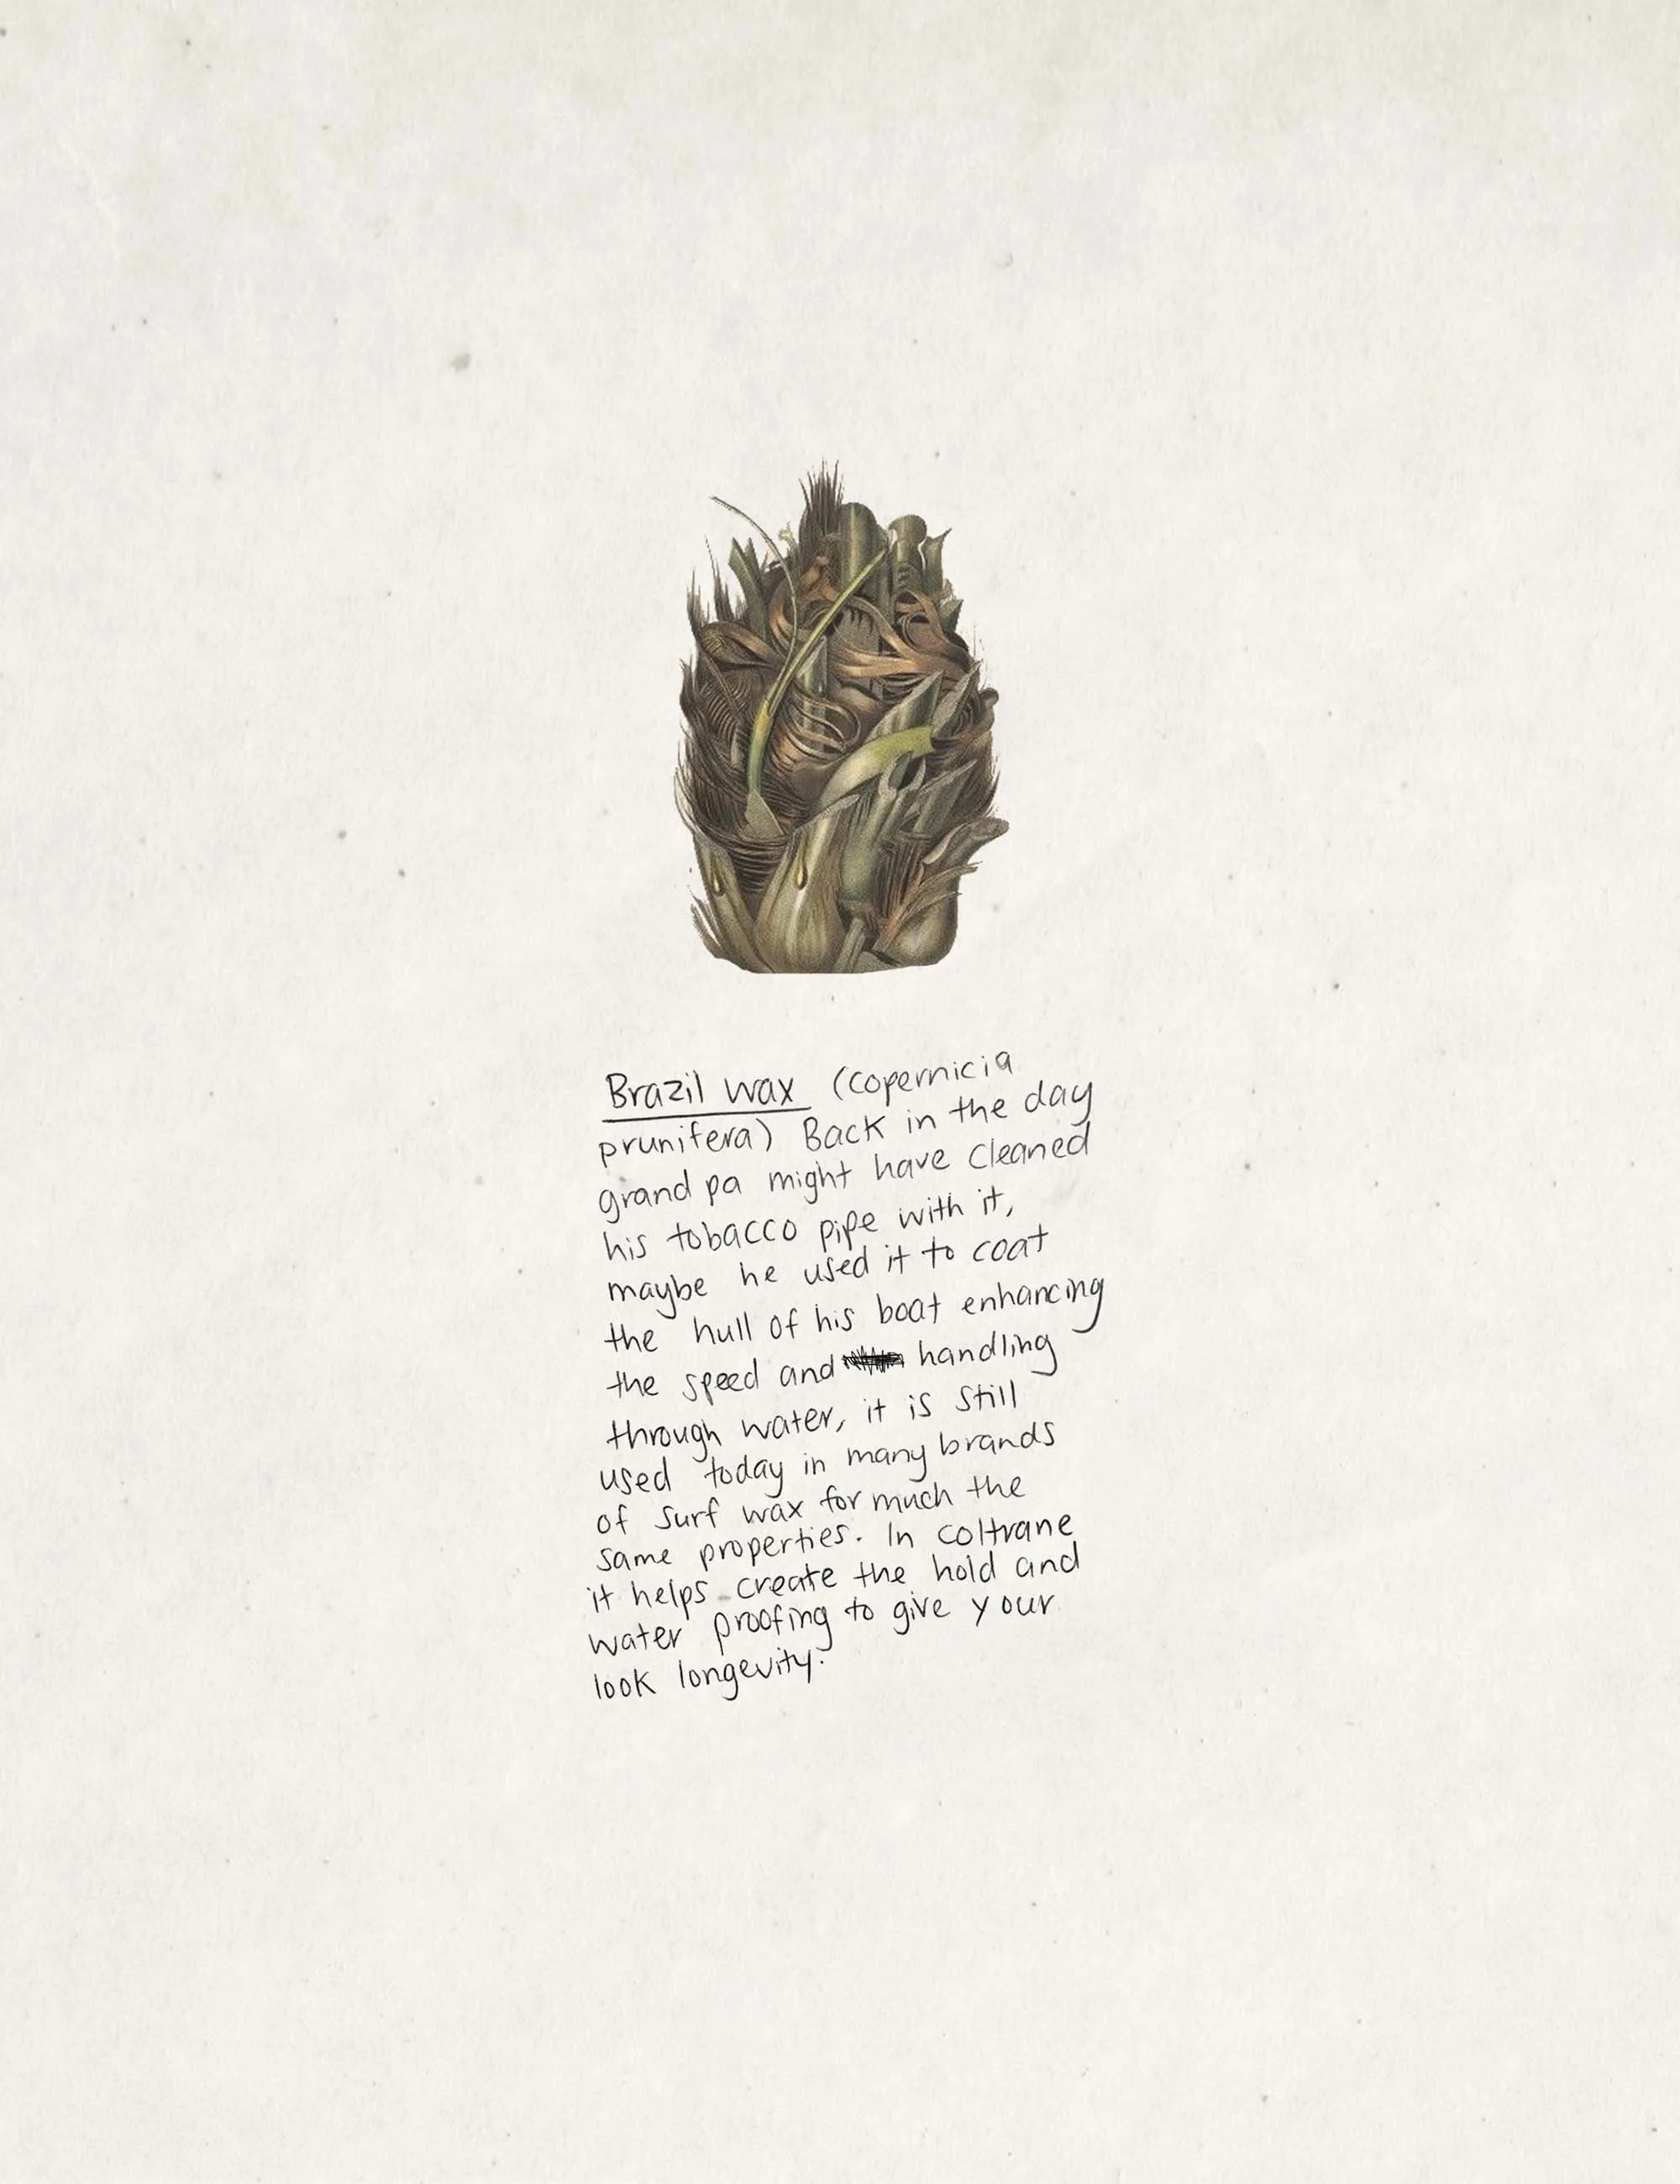 Brazil wax (copernicia
prunifera) Back in the day
grand pa might have cleaned
his tobacco pipe with it,
maybe he used it to coat
the hull of his boat enhancing
the speed and handling
through water, it is still
used today in many brands
of surf wax for much the
same properties. In coltrane
it helps create the hold and
water proofing to give your
look longevity.